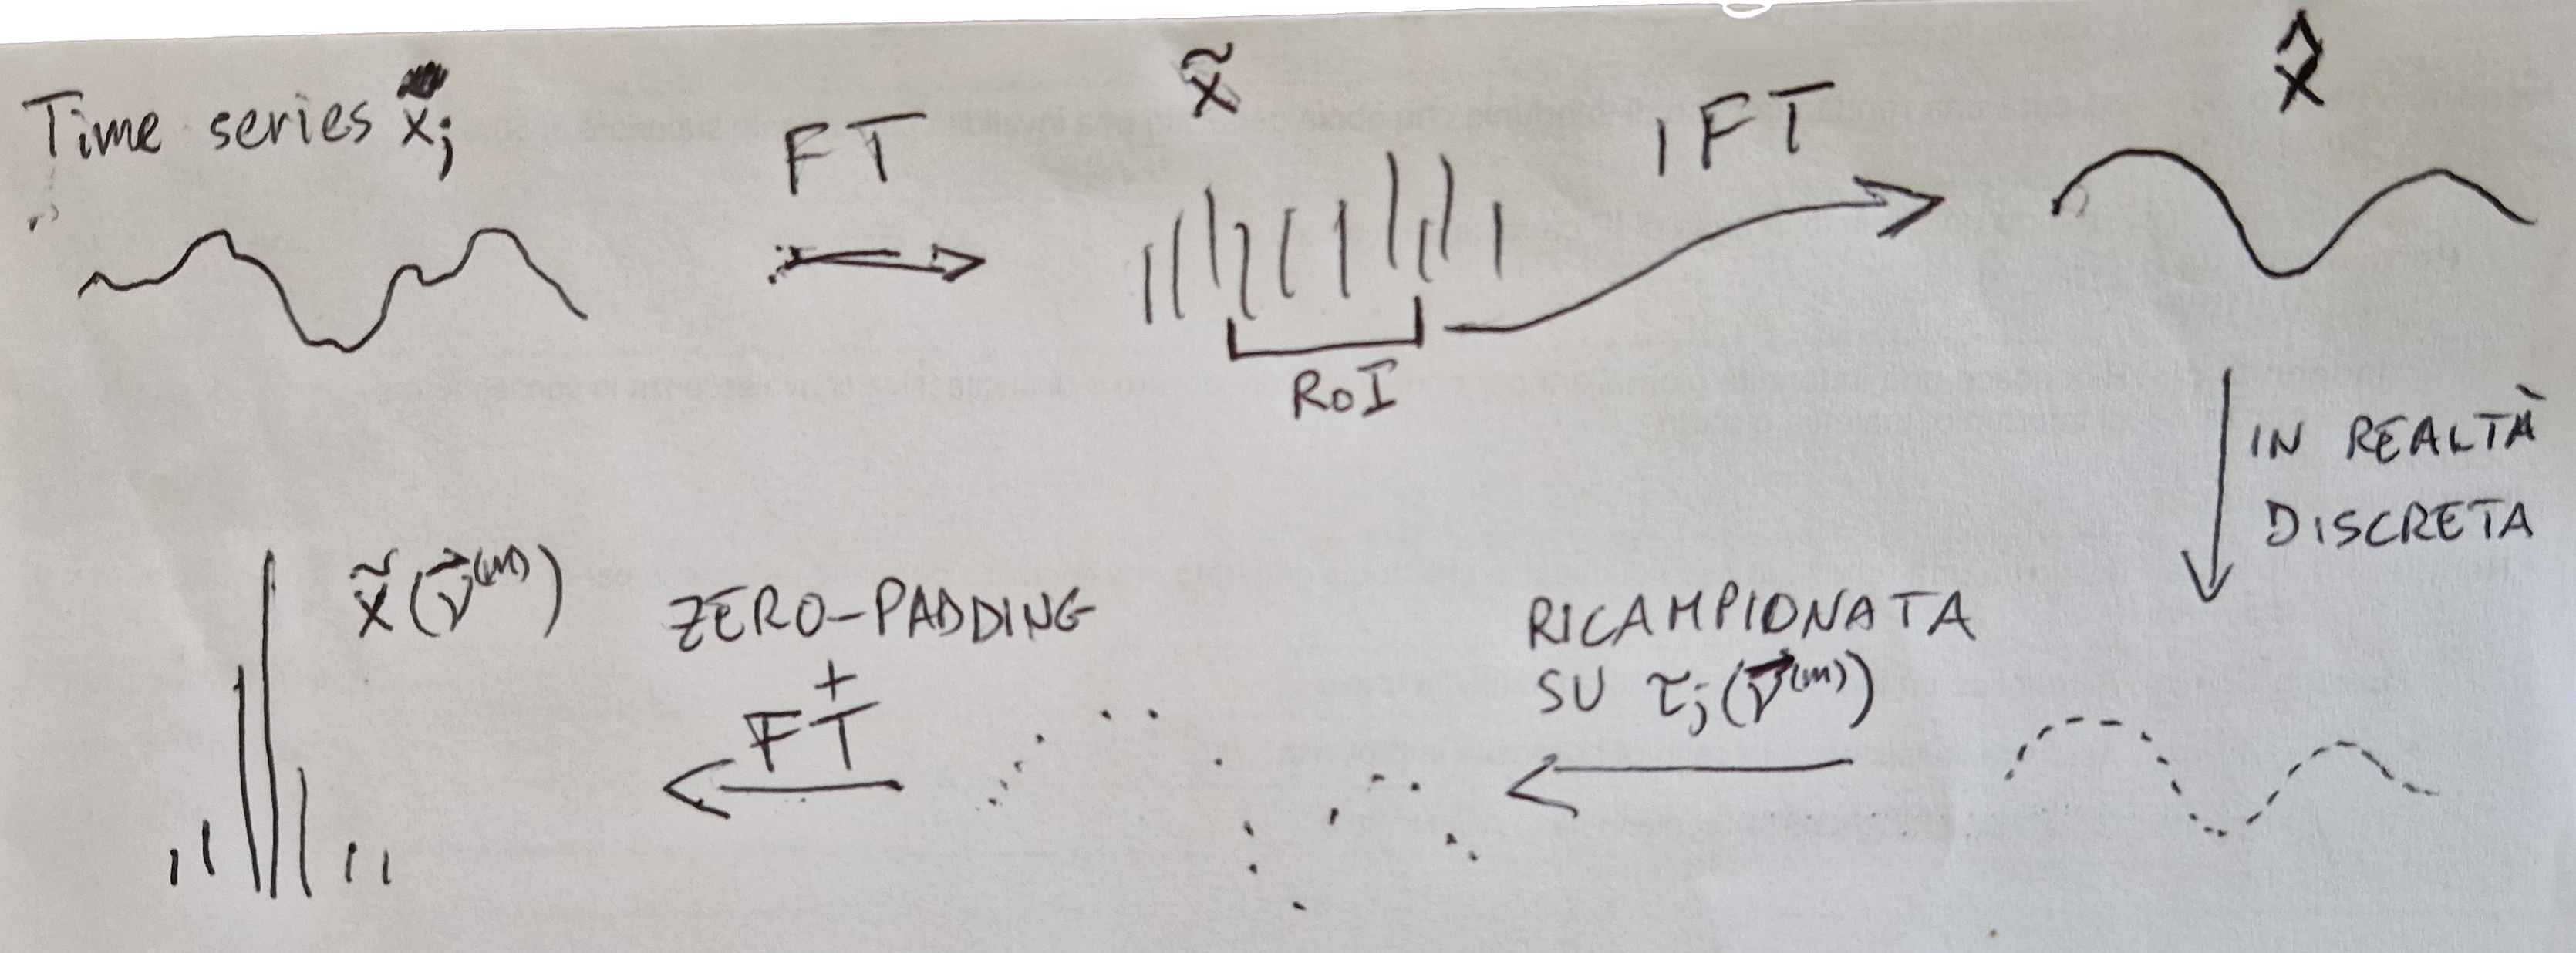 Time series x_j
FT
x̃
IFT
x̂
RoI
IN REALTÀ
DISCRETA
RICAMPIONATA
SU τ_j(ν⃗^(m))
ZERO-PADDING
+
FT
x̃(ν⃗^(m))